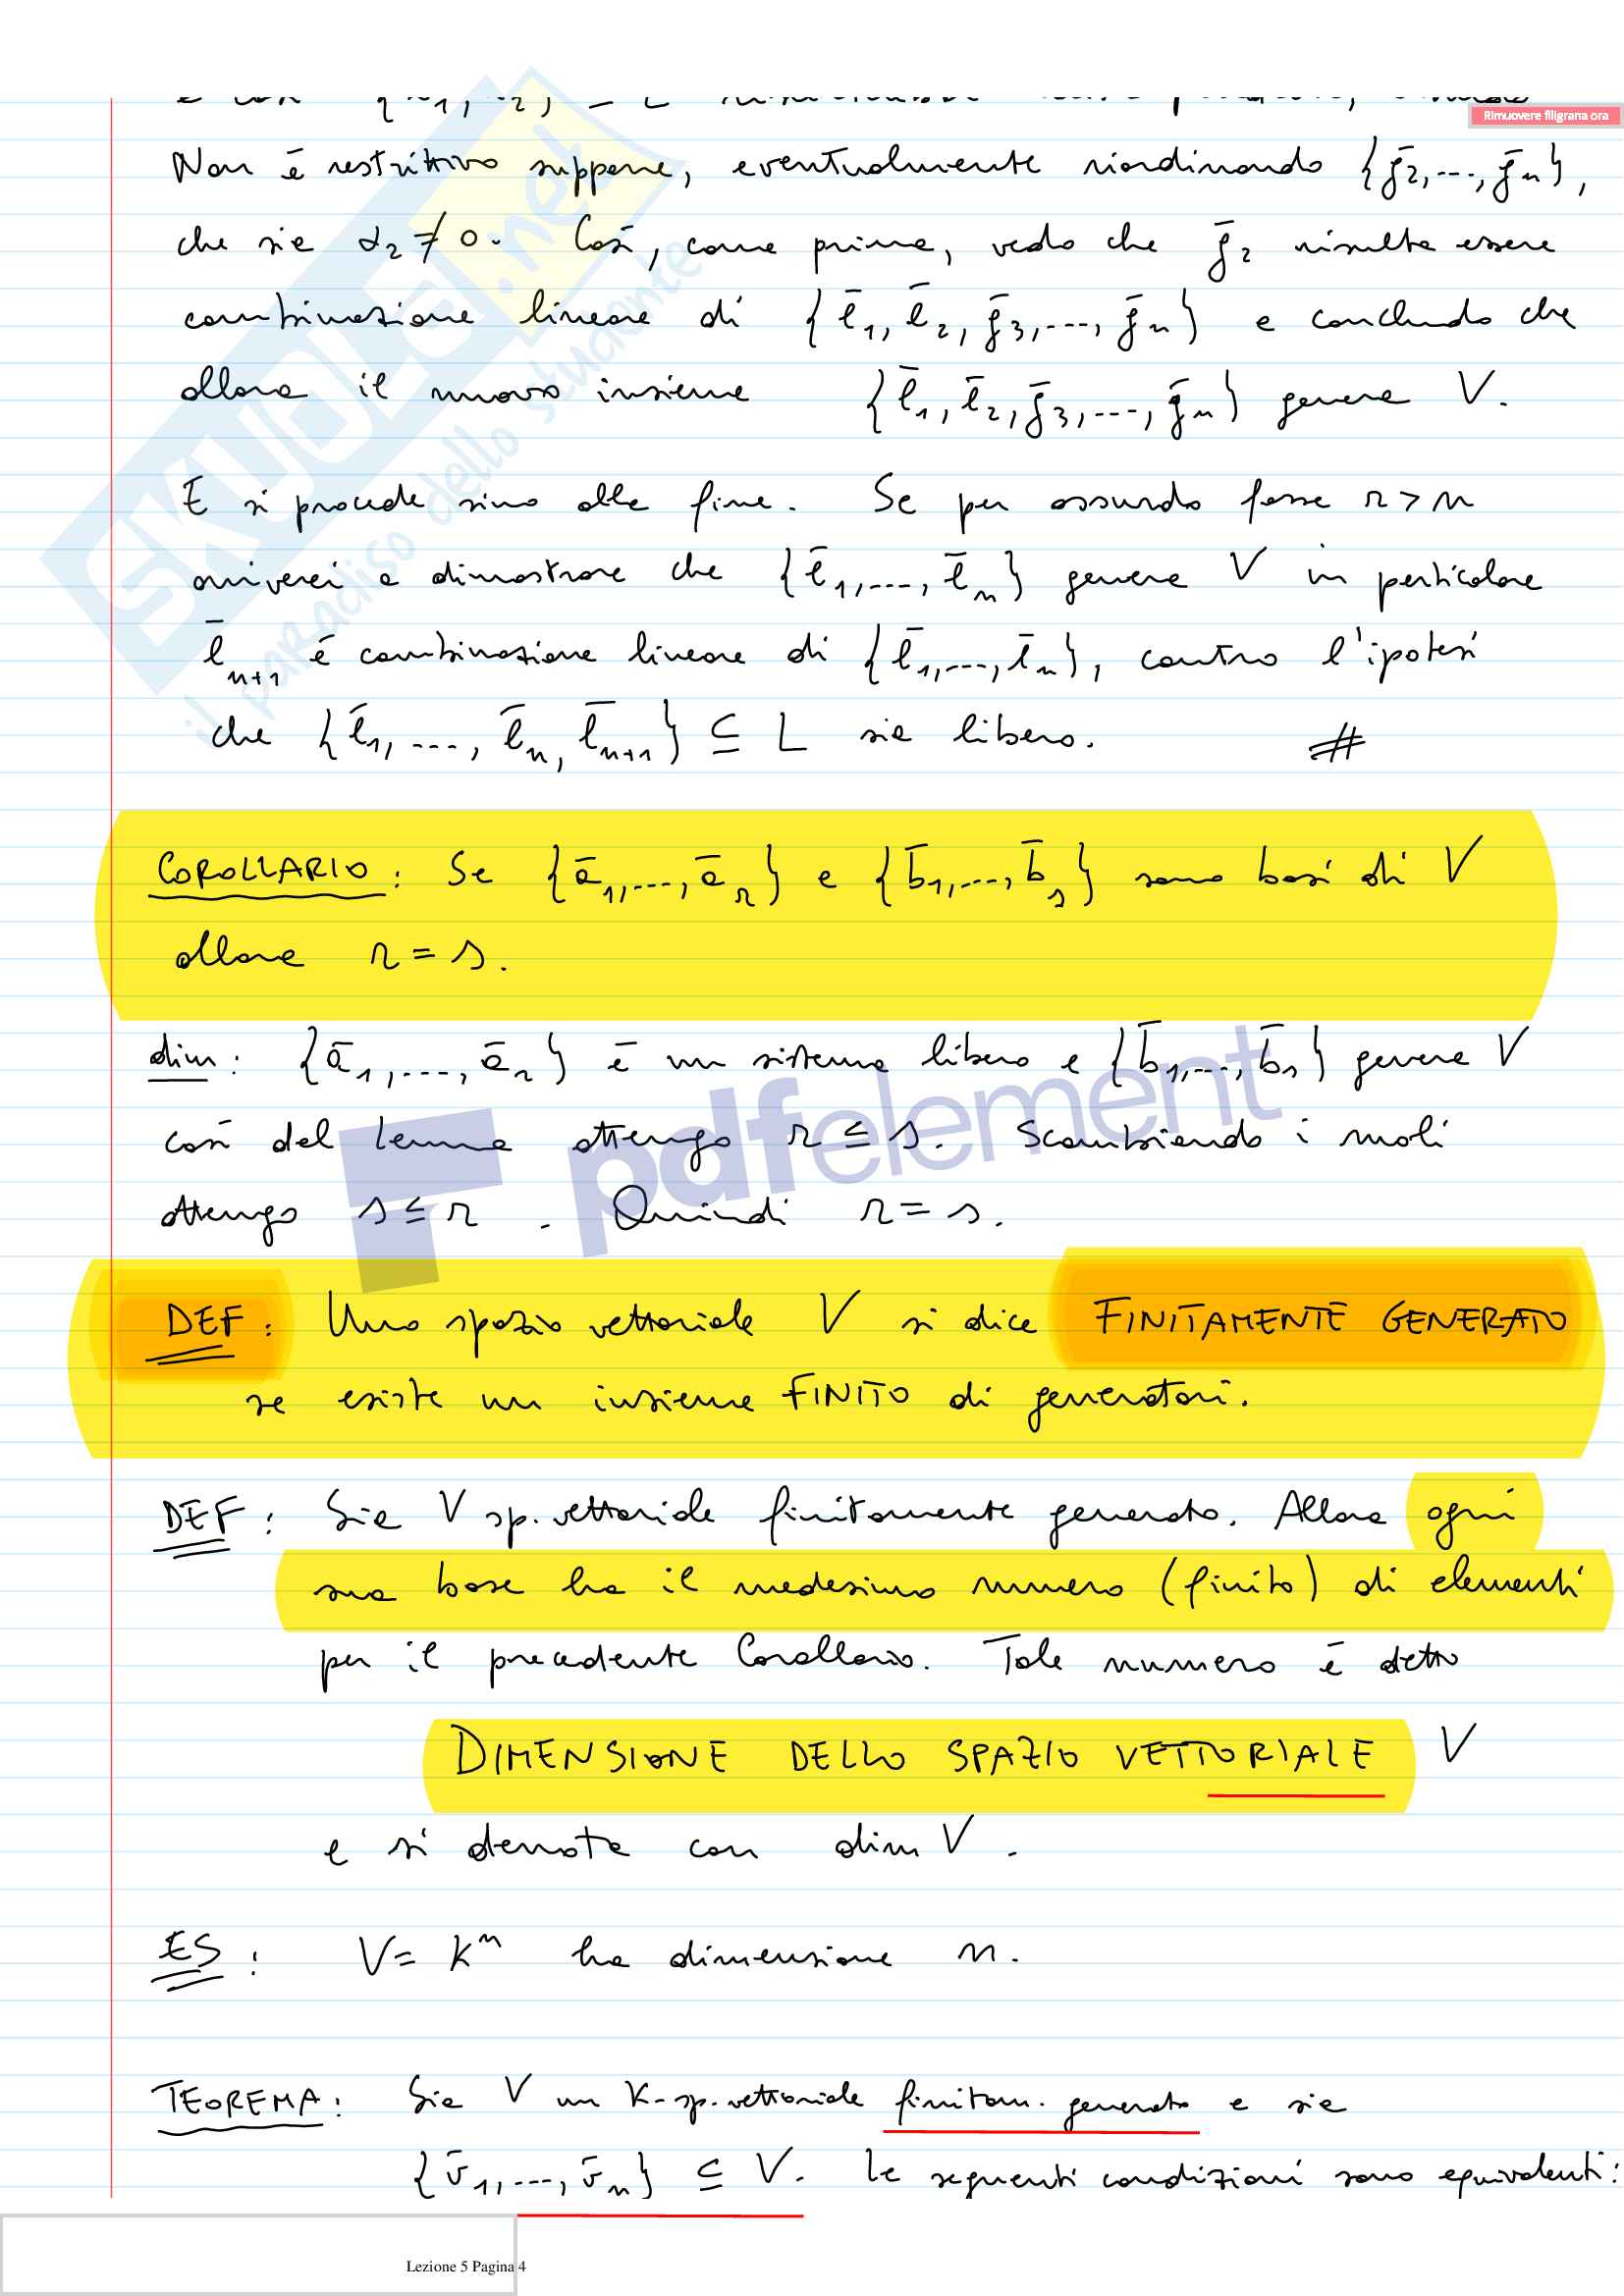 Rimuovere filigrana ora
Non è restrittivo supporre, eventualmente riordinando {ḡ₂,...,ḡₙ},
che sia α₂ ≠ 0. Così, come prima, vedo che ḡ₂ risulta essere
combinazione lineare di {l̄₁, l̄₂, ḡ₃,..., ḡₙ} e concludo che
allora il nuovo insieme {l̄₁, l̄₂, ḡ₃,..., ḡₙ} genera V.
E si procede sino alla fine. Se per assurdo fosse r > n
arriverei a dimostrare che {l̄₁,..., l̄ₙ} genera V in particolare
l̄ₙ₊₁ è combinazione lineare di {l̄₁,..., l̄ₙ}, contro l'ipotesi
che {l̄₁,..., l̄ₙ, l̄ₙ₊₁} ⊆ L sia libero. #
COROLLARIO: Se {ā₁,..., āᵣ} e {b̄₁,..., b̄ₛ} sono basi di V
allora r = s.
dim: {ā₁,..., āᵣ} è un sistema libero e {b̄₁,..., b̄ₛ} genera V
così dal lemma ottengo r ≤ s. Scambiando i ruoli
ottengo s ≤ r. Quindi r = s.
DEF: Uno spazio vettoriale V si dice FINITAMENTE GENERATO
se esiste un insieme FINITO di generatori.
DEF: Sia V sp. vettoriale finitamente generato. Allora ogni
sua base ha il medesimo numero (finito) di elementi
per il precedente Corollario. Tale numero è detto
DIMENSIONE DELLO SPAZIO VETTORIALE V
e si denota con dim V.
ES: V = Kⁿ ha dimensione n.
TEOREMA: Sia V un K-sp. vettoriale finitam. generato e sia
{v̄₁,..., v̄ₙ} ⊆ V. Le seguenti condizioni sono equivalenti:
Lezione 5 Pagina 4
SKUOLA.net
il paradiso dello studente
pdfelement